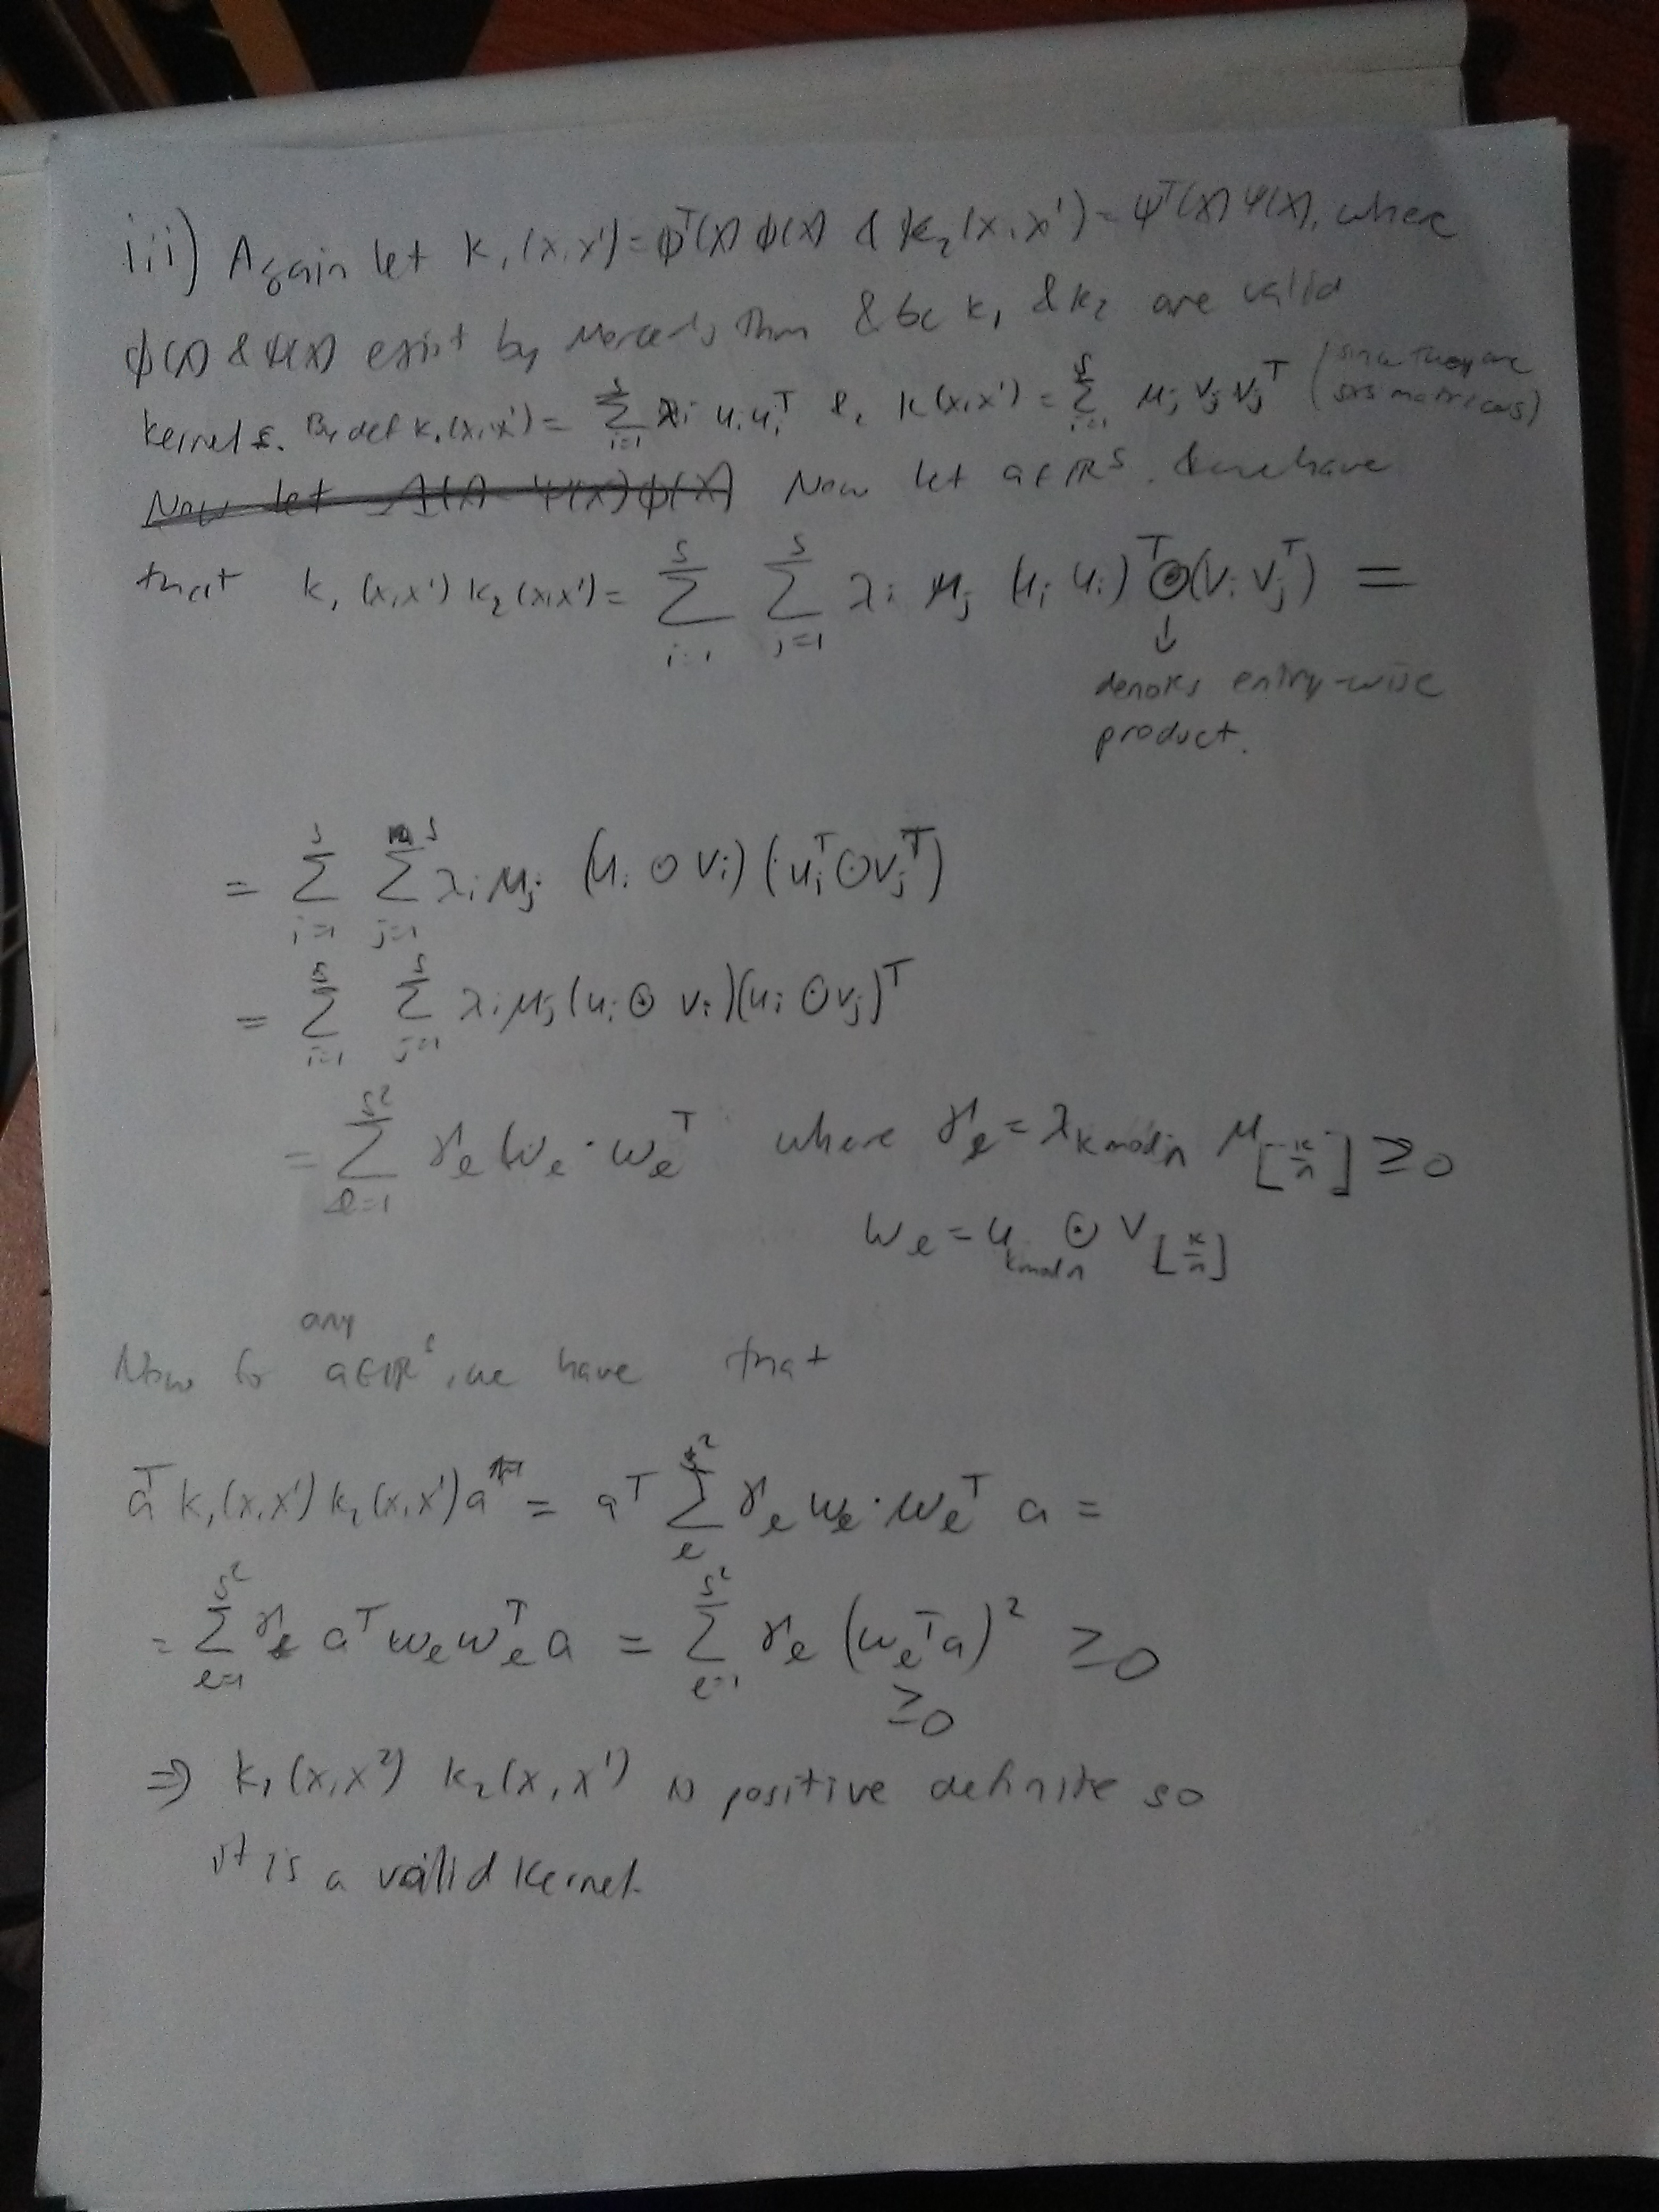 iii) Again let k₁(x,x') = φᵀ(x) φ(x) & k₂(x,x') = ψᵀ(x) ψ(x), where
φ(x) & ψ(x) exist by Mercer's Thm & bc k₁ & k₂ are valid
kernels. By def k₁(x,x') = Σ_{i=1}^{s} λᵢ uᵢ uᵢᵀ & k(x,x') = Σ_{i=1}^{s} μⱼ vⱼ vⱼᵀ (since they are sxs matrices)
Now let Λ(x) = ψ(x) φ(x) Now let a ∈ ℝˢ. & we have
that k₁(x,x') k₂(x,x') = Σ_{i=1}^{s} Σ_{j=1}^{s} λᵢ μⱼ (uᵢ uᵢ)ᵀ ⊙ (vᵢ vⱼᵀ) =
↓
denotes entry-wise
product.
= Σ_{i=1}^{s} Σ_{j=1}^{s} λᵢ μⱼ (uᵢ ⊙ vᵢ) (uᵢᵀ ⊙ vⱼᵀ)
= Σ_{i=1}^{s} Σ_{j=1}^{s} λᵢ μⱼ (uᵢ ⊙ vᵢ)(uᵢ ⊙ vⱼ)ᵀ
= Σ_{l=1}^{s²} γ_l w_l · w_lᵀ where γ_l = λ_{k mod n} μ_{⌊k/n⌋} ≥ 0
w_l = u_{k mod n} ⊙ v_{⌊k/n⌋}
Now for any a∈ℝˢ, we have that
aᵀ k₁(x,x') k₂(x,x') a = aᵀ Σ_{l}^{s²} γ_l w_l · w_lᵀ a =
= Σ_{l=1}^{s²} γ_l aᵀ w_l w_lᵀ a = Σ_{l=1}^{s²} γ_l (w_lᵀ a)² ≥ 0
≥ 0
⇒ k₁(x,x') k₂(x,x') is positive definite so
it is a valid kernel.